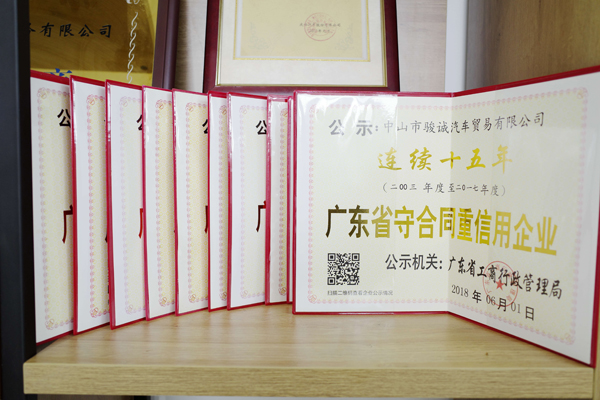 务有限公司
公示：中山市骏诚汽车贸易有限公司
连续十五年
（二00三 年度至二0一七年度）
广东省守合同重信用企业
公示机关：广东省工商行政管理局
2018 年 06 月 01 日
公
公
公
公
公
公
公
广
广
广
广
广
广